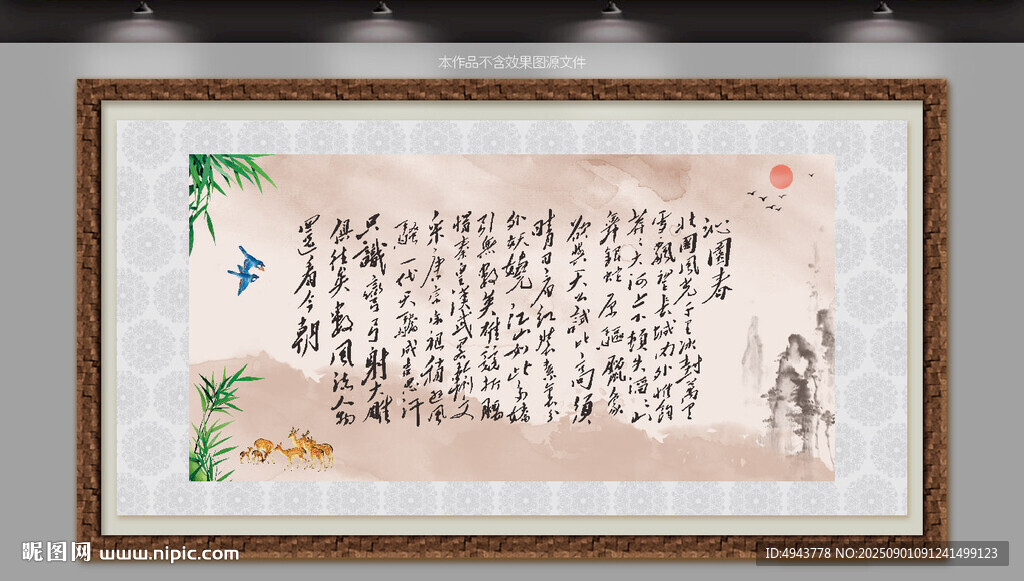 本作品不含效果图源文件
沁園春
北國風光千里冰封萬里
雪飄望長城内外惟餘
莽々大河上下頓失滔々山
舞銀蛇原驅臘象
欲與天公試比高須
晴日看红装素裹分
外妖嬈江山如此多娇
引無數英雄競折腰
惜秦皇漢武略輸文
采唐宗宋祖稍逊風
騷一代天驕成吉思汗
只識彎弓射大雕
俱往矣數風流人物
還看今朝
昵图网 www.nipic.com
ID:4943778 NO:20250901091241499123